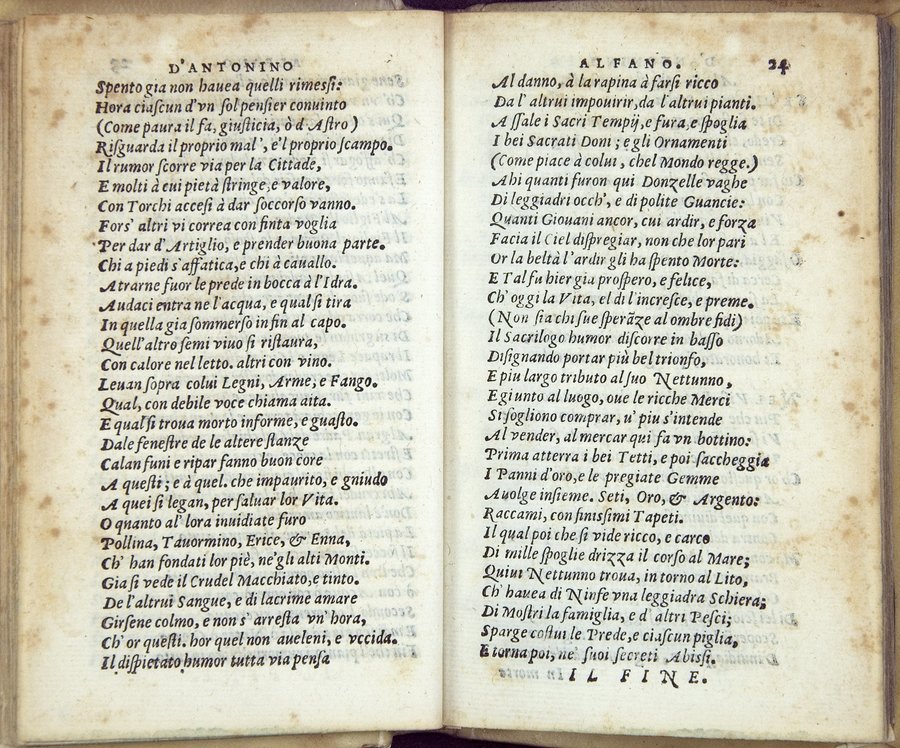 D'ANTONINO
Spento gia non hauea quelli rimessi:
Hora ciascun d'vn sol pensier conuinto
(Come paura il fa, giusticia, ò d'Astro)
Risguarda il proprio mal', e'l proprio scampo.
Il rumor scorre via per la Cittade,
E molti à cui pietà stringe, e valore,
Con Torchi accesi à dar soccorso vanno.
Fors' altri vi correa con finta voglia
Per dar d'Artiglio, e prender buona parte.
Chi a piedi s'affatica, e chi à cauallo.
Atrarne fuor le prede in bocca à l'Idra.
Audaci entra ne l'acqua, e qual si tira
In quella gia sommerso in fin al capo.
Quell'altro semi viuo si ristaura,
Con calore nel letto. altri con vino.
Leuan sopra colui Legni, Arme, e Fango.
Qual, con debile voce chiama aita.
E qual si troua morto informe, e guasto.
Dale fenestre de le altere stanze
Calan funi e ripar fanno buon core
A questi; e à quel. che impaurito, e gniudo
A quei si legan, per saluar lor Vita.
O quanto al' lora inuidiate furo
Pollina, Tauormino, Erice, & Enna,
Ch' han fondati lor piè, ne'gli alti Monti.
Gia si vede il Crudel Macchiato, e tinto.
De l'altrui Sangue, e di lacrime amare
Girsene colmo, e non s' arresta vn' hora,
Ch'or questi. hor quel non aueleni, e vccida.
Il dispietato humor tutta via pensa
ALFANO. 24
Al danno, à la rapina à farsi ricco
Da l' altrui impouirir, da l'altrui pianti.
Assale i Sacri Tempij, e fura, e spoglia
I bei Sacrati Doni; e gli Ornamenti
(Come piace à colui, chel Mondo regge.)
Ahi quanti furon qui Donzelle vaghe
Di leggiadri occh', e di polite Guancie:
Quanti Giouani ancor, cui ardir, e forza
Facia il Ciel dispregiar, non che lor pari
Or la beltà l'ardir gli ha spento Morte:
E Tal fu hier gia prospero, e felice,
Ch' oggi la Vita, el dì l'incresce, e preme.
(Non sia chi sue sperãze al ombre fidi)
Il Sacrilogo humor discorre in basso
Disignando portar più bel trionfo,
E piu largo tributo al suo Nettunno,
E giunto al luogo, oue le ricche Merci
Si sogliono comprar, u' piu s'intende
Al vender, al mercar qui fa vn bottino:
Prima atterra i bei Tetti, e poi saccheggia
I Panni d'oro, e le pregiate Gemme
Auolge insieme. Seti, Oro, & Argento:
Raccami, con finissimi Tapeti.
Il qual poi che si vide ricco, e carco
Di mille spoglie drizza il corso al Mare;
Quiui Nettunno troua, in torno al Lito,
Ch' hauea di Ninfe vna leggiadra Schiera;
Di Mostri la famiglia, e d' altri Pesci;
Sparge costui le Prede, e ciascun piglia,
E torna poi, ne' suoi secreti Abissi.
IL FINE.